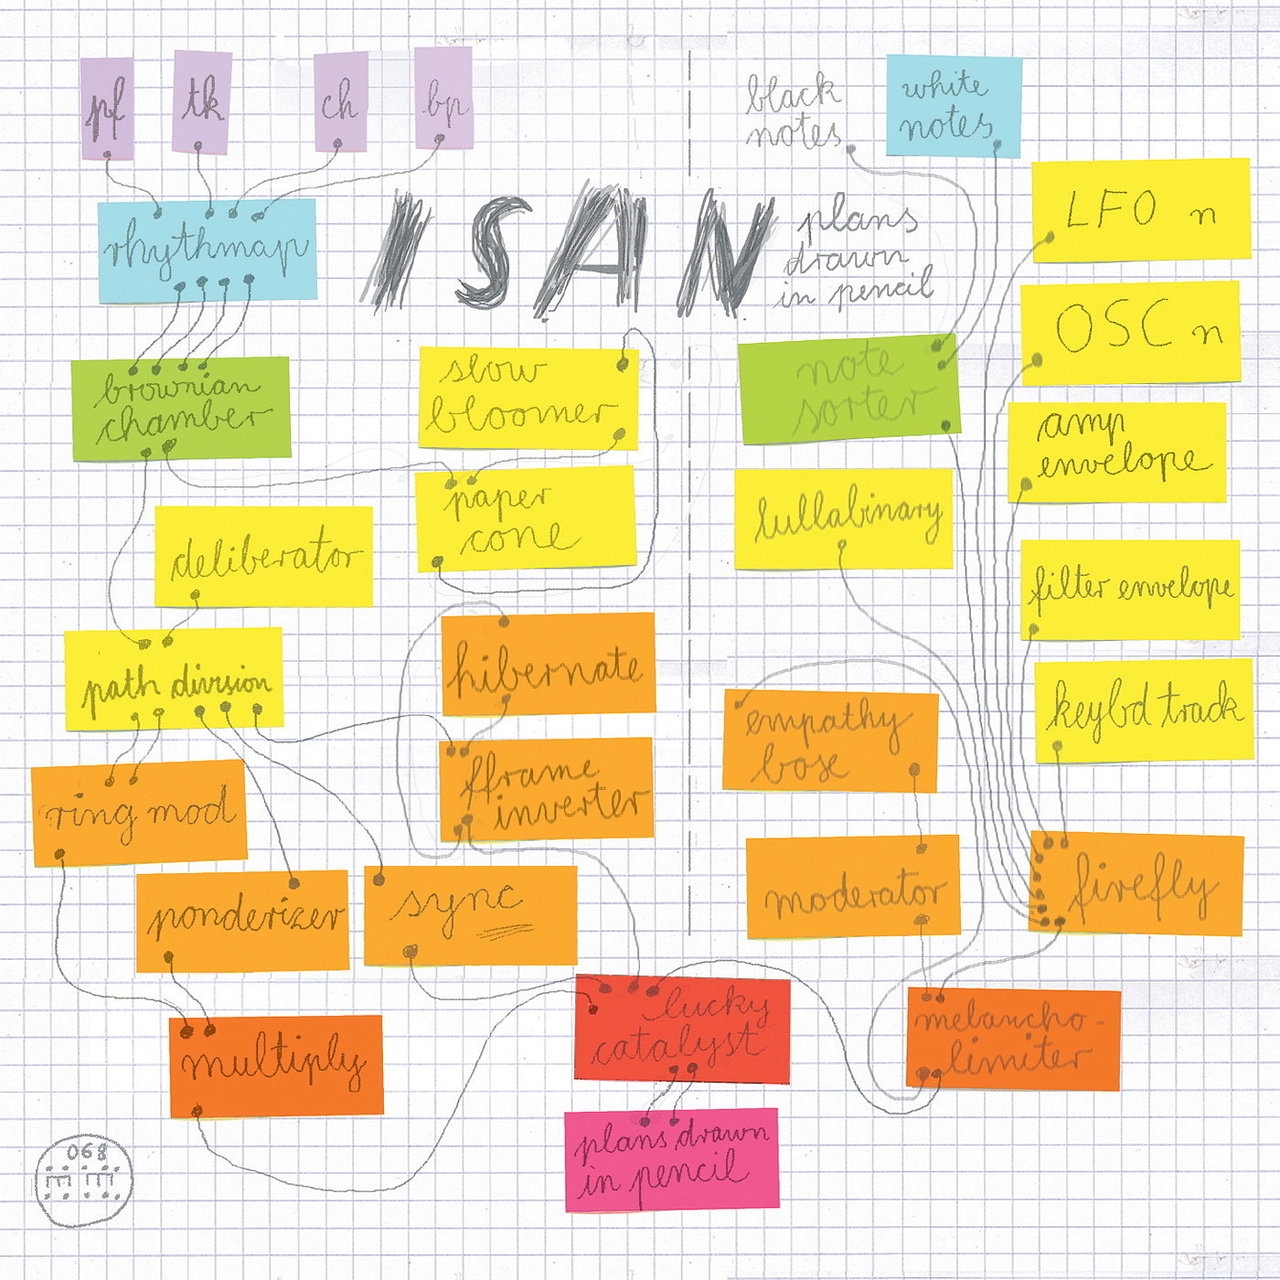 pf
tk
ch
bp
black
notes
white
notes
rhythmap
ISAN
plans
drawn
in pencil
LFO n
OSC n
brownian
chamber
slow
bloomer
note
sorter
amp
envelope
paper
cone
lullabinary
deliberator
filter envelope
path division
hibernate
empathy
bose
keybd track
ring mod
fframe
inverter
moderator
firefly
ponderizer
sync
lucky
catalyst
melancho-
limiter
multiply
plans drawn
in pencil
068